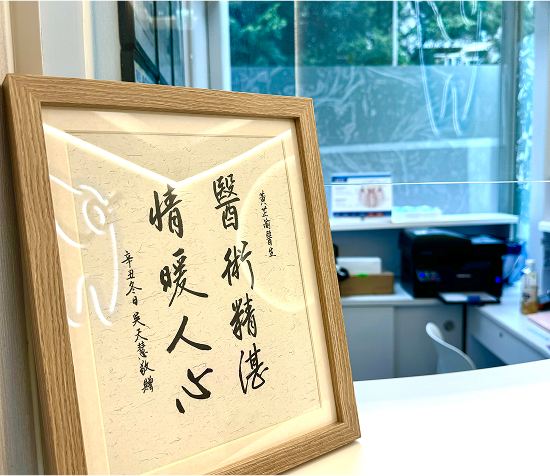 黄芝蘭醫生
醫術精湛
情暖人心
辛丑冬日吴天慧敬贈